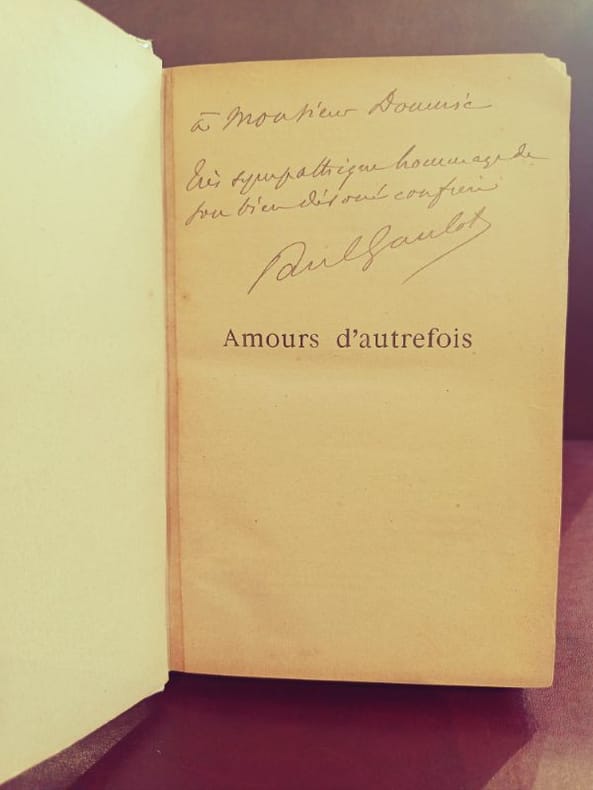 à Monsieur Doumic
Très sympathique hommage de
son bien dévoué confrère
Paul Gaulot
Amours d'autrefois